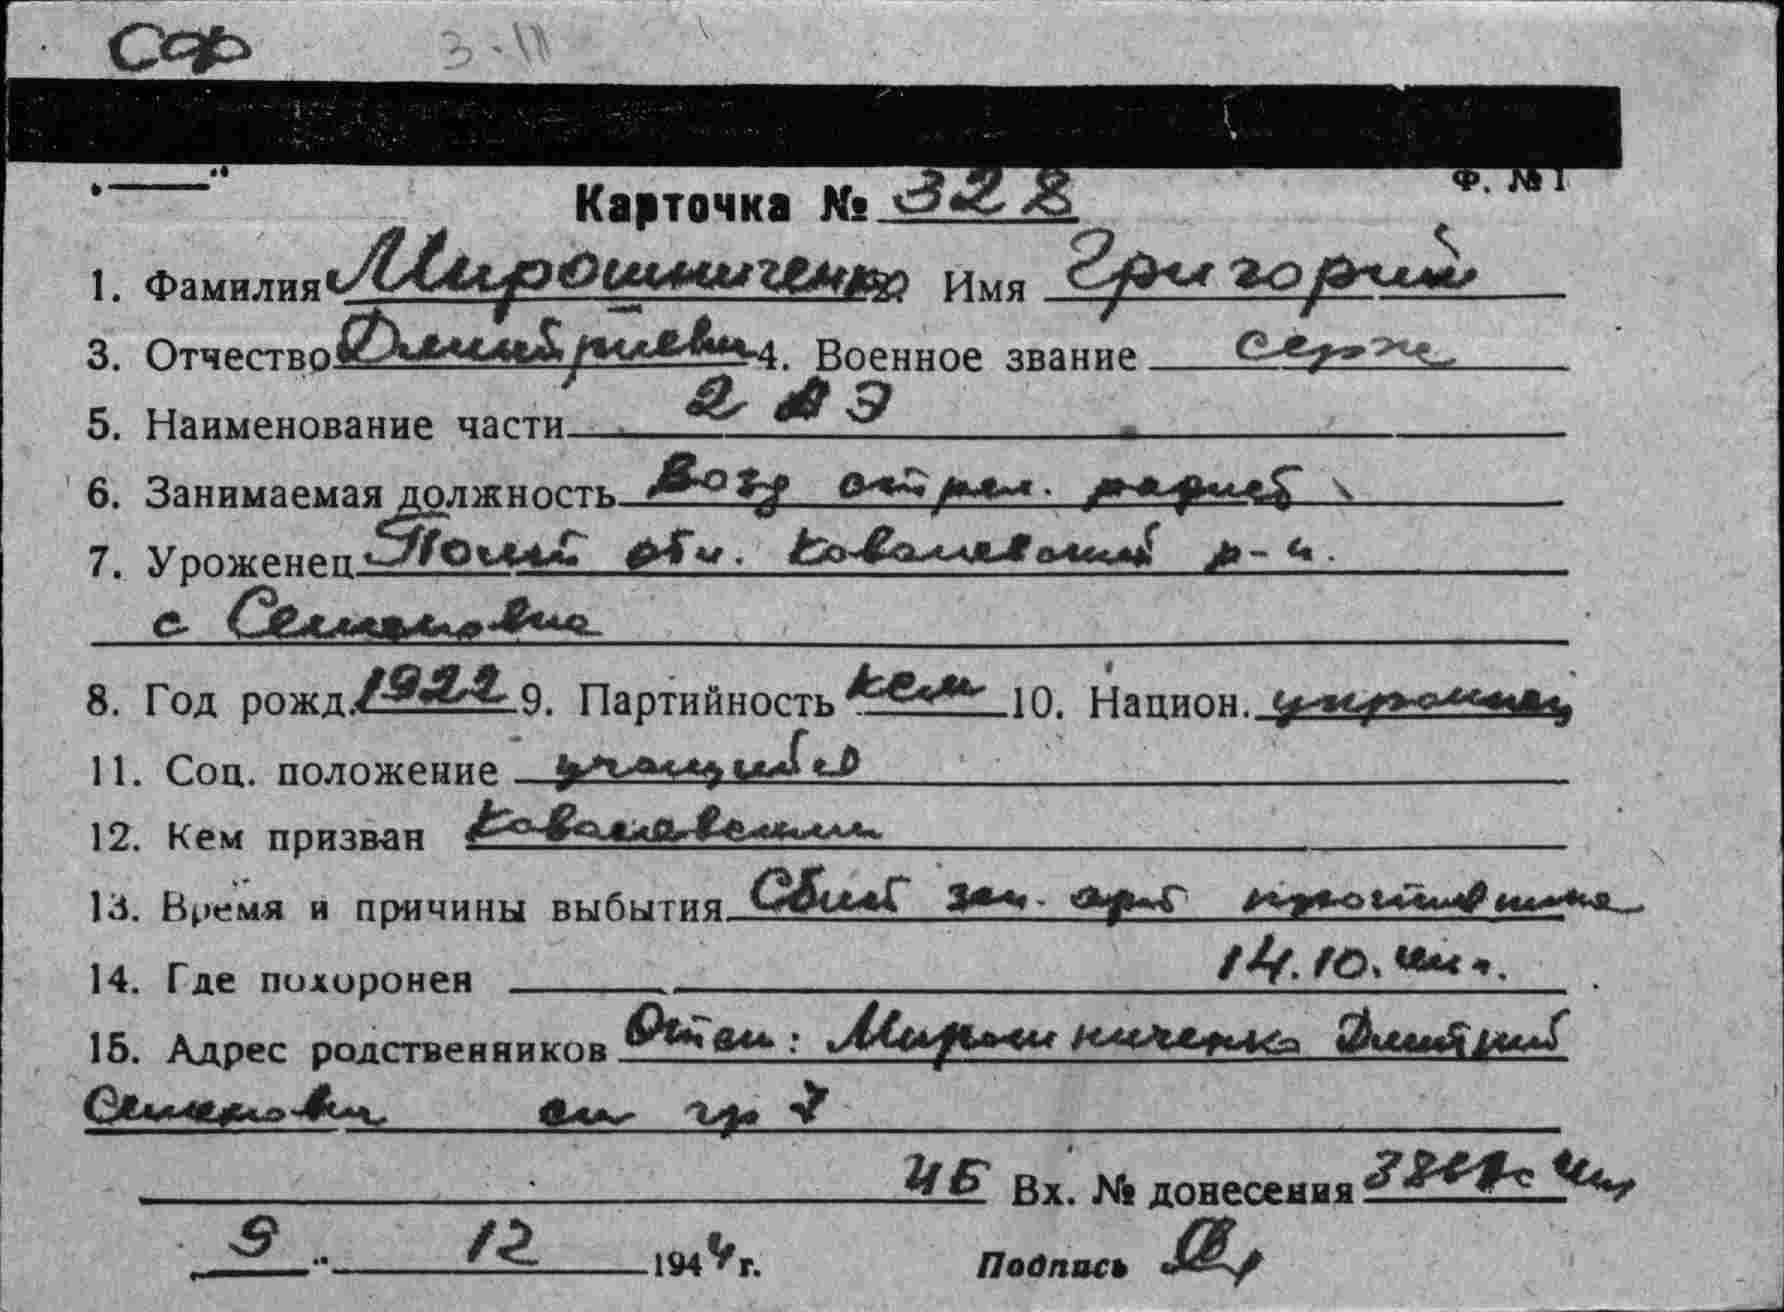 Сф
3-11
Ф. № 1
Карточка № 328
1. Фамилия Мирошниченко Имя Григорий
3. Отчество Дмитриевич 4. Военное звание серж
5. Наименование части 2 АЭ
6. Занимаемая должность Возд стрел. радист
7. Уроженец Полт обл. Ковалевский р-н.
с Семеновка
8. Год рожд. 1922 9. Партийность 10. Национ. украинец
11. Соц. положение учащийся
12. Кем призван Ковалевским
13. Время и причины выбытия Сбит зен. арт противника
14. Где похоронен 14.10.
15. Адрес родственников Отец: Мирошниченко Дмитрий
Семенович см гр 7
ИБ Вх. № донесения
9 12 1944 г. Подпись